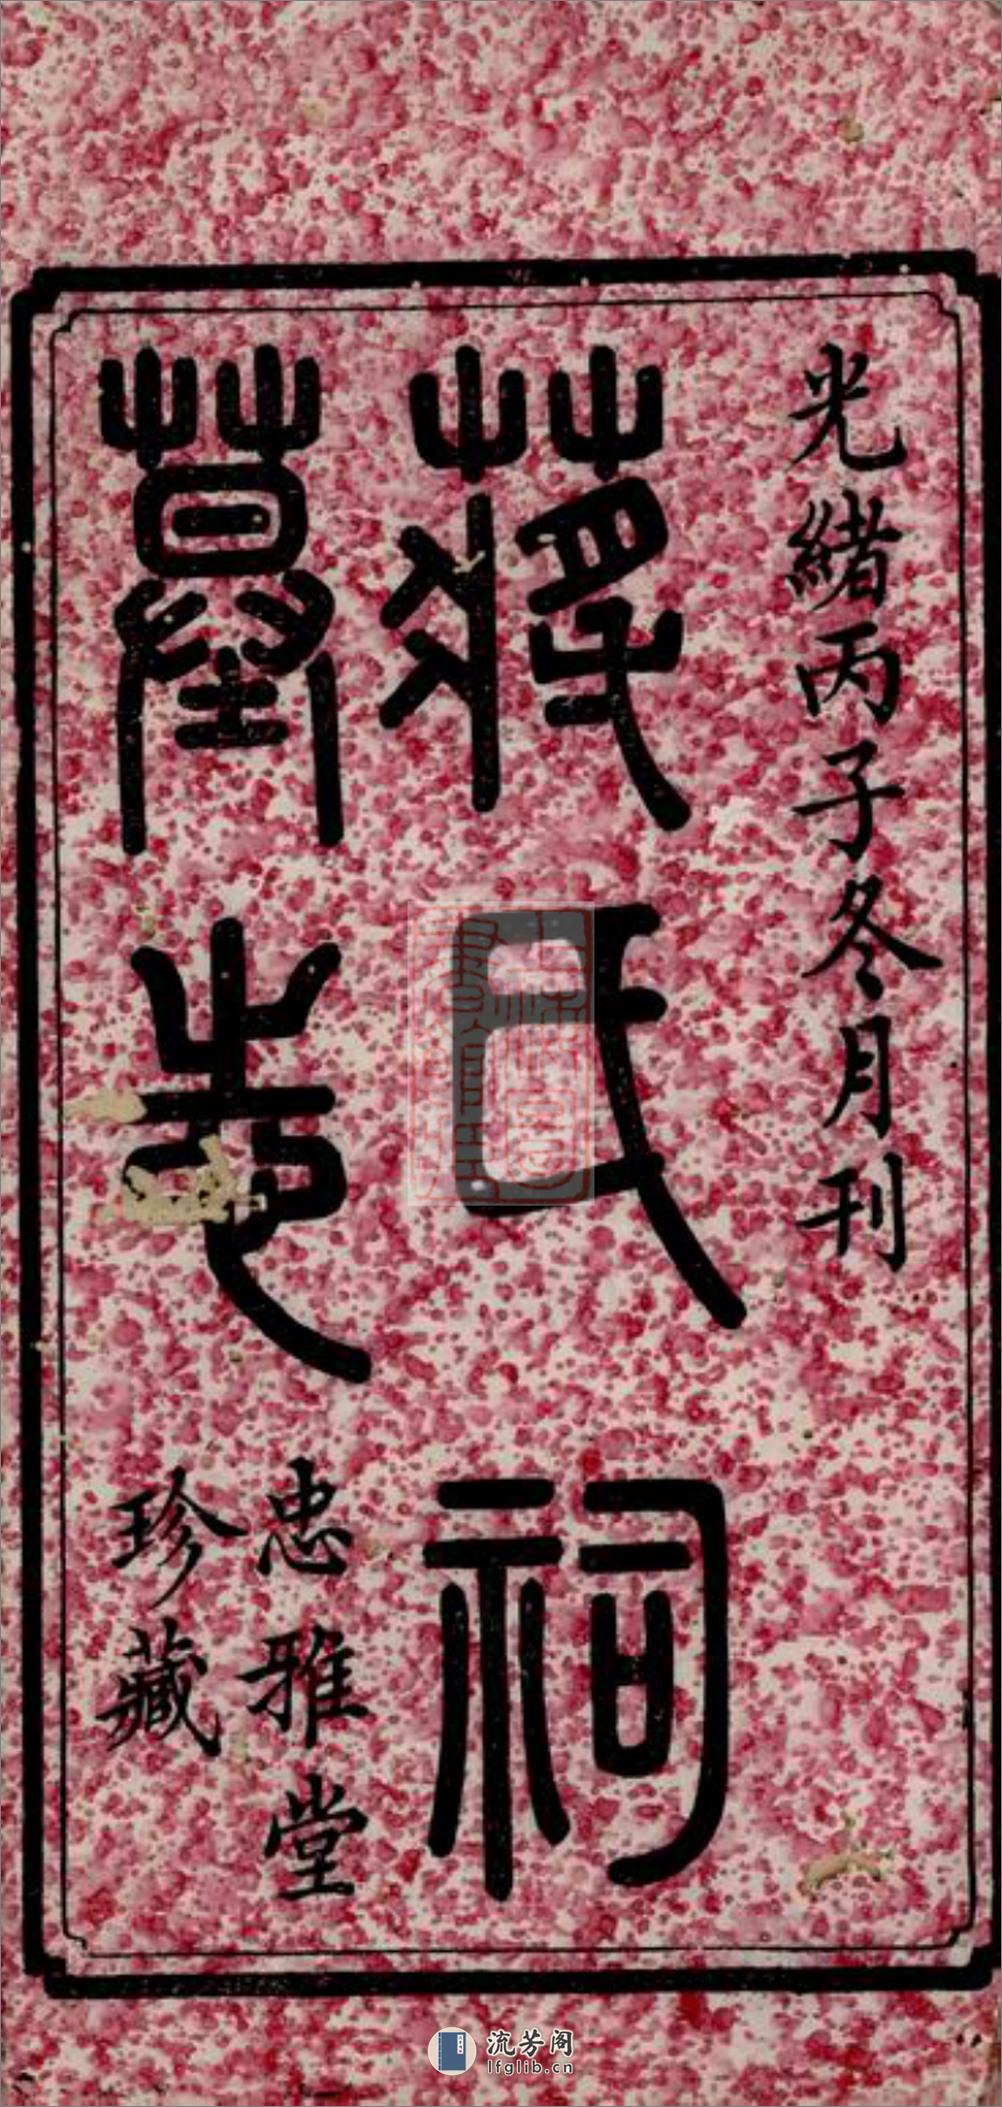 光緒丙子冬月刊
蔣氏祠
墓志
忠雅堂
珍藏
流芳阁
lfglib.cn